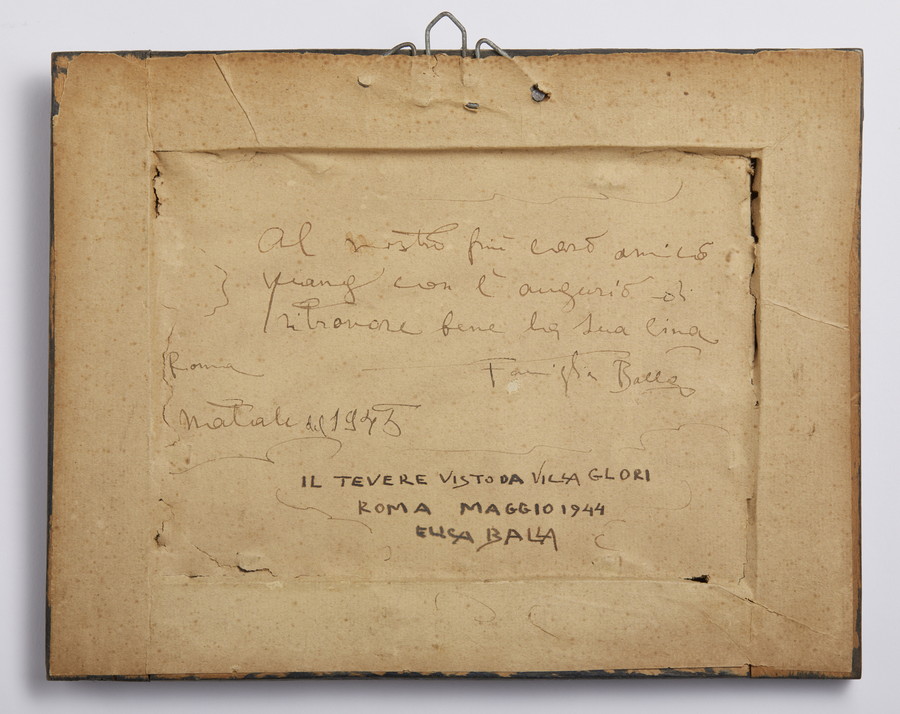 Al nostro più caro amico
con l'augurio di
ritrovare bene la sua Cina
Roma
Famiglia Balla
Natale del 1945
IL TEVERE VISTO DA VILLA GLORI
ROMA MAGGIO 1944
ELICA BALLA